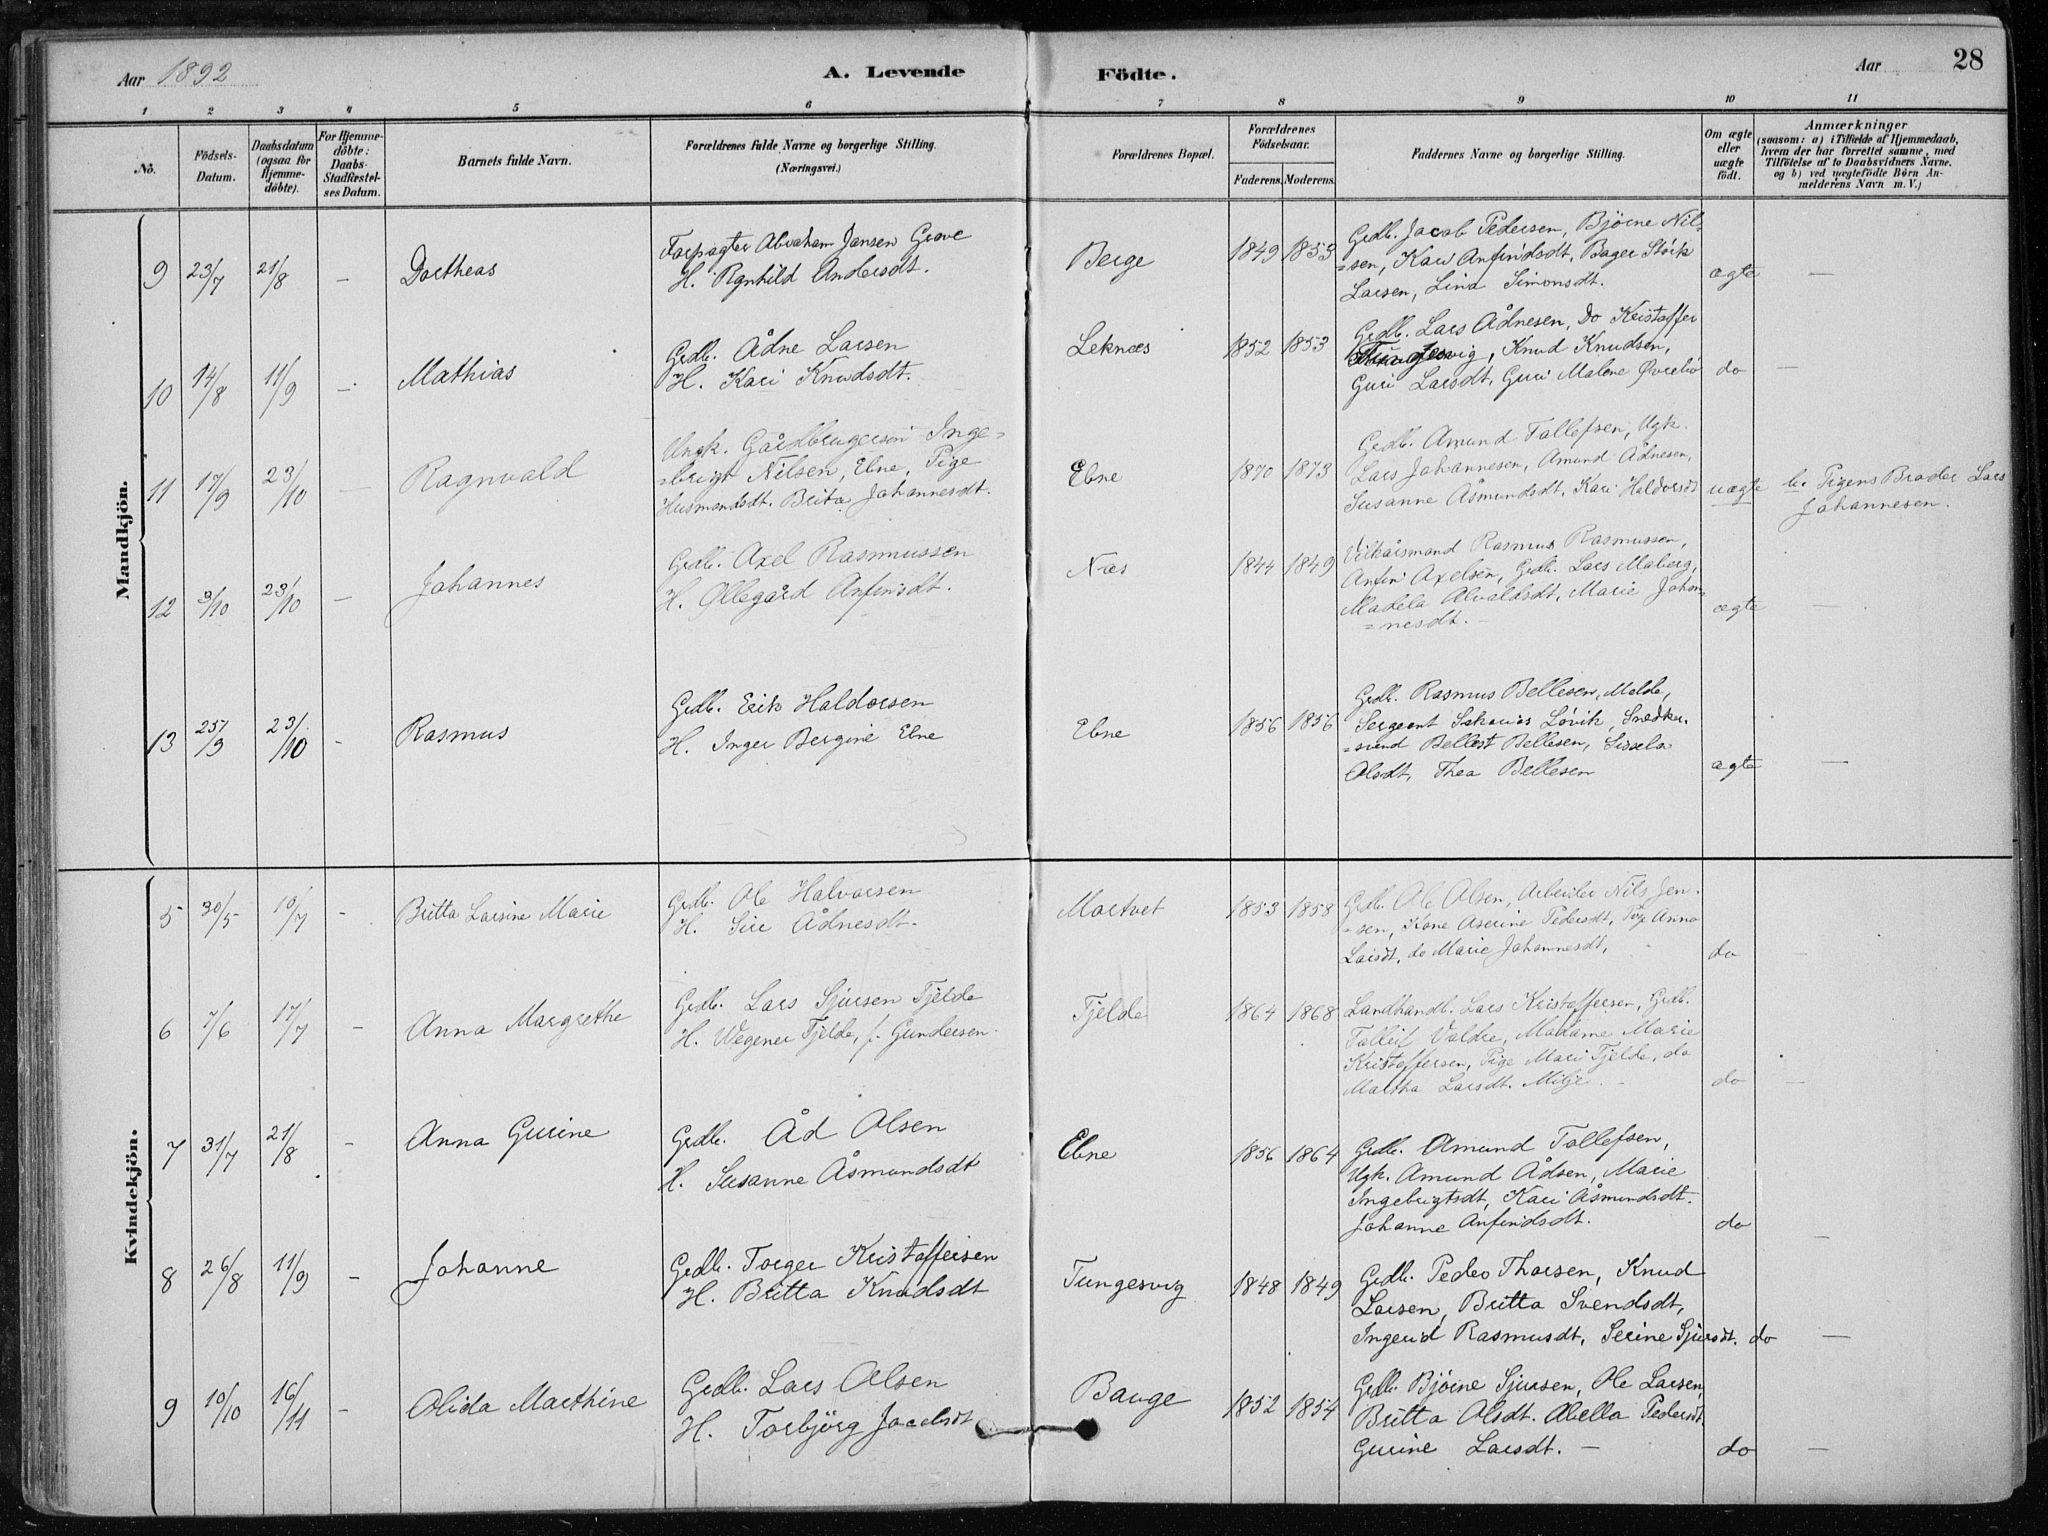 Aar 1892
A. Levende
Födte.
Aar
28
1 2 3 4 5 6 7 8 9 10 11
No.
Födsels-
Datum.
Daabsdatum
(ogsaa for
Hjemme-
döbte).
For Hjemme-
döbte:
Daabs-
Stadfæstel-
ses Datum.
Barnets fulde Navn.
Forældrenes fulde Navne og borgerlige Stilling.
(Næringsvei.)
Forældrenes Bopæl.
Forældrenes
Födselsaar.
Faderens. Moderens.
Faddernes Navne og borgerlige Stilling.
Om ægte
eller
uægte
födt.
Anmærkninger
(saasom: a) i Tilfælde af Hjemmedaab,
hvem der har forrettet samme, med
Tilföielse af to Daabsvidners Navne.
og b) ved uægtefödte Börn An-
melderens Navn m. V.)
Mandkjön.
9 23/7 21/8 – Dortheas
Forpagter Abraham Jansen Grove
H. Rgnhild Andersdt.
Berge 1849 1853
Grdb. Jacob Pedersen, Bjørne Nil-
=sen, Kari Anfindsdt, Bager Størk
Larsen, Lina Simonsdt.
ægte –
10 14/8 11/9 – Mathias
Grdb. Ådne Larsen
H. Kari Knudsdt.
Leknæs 1852 1853
Grdb. Lars Ådnesen, Do Kristoffer
Tungesvig, Knud Knudsen,
Guri Larsdt, Guri Malene Øvrebø
do –
11 17/9 23/10 – Ragnvald
Ungk. Gårdbrugersøn Inge=
=brigt Nilsen, Ebne, Pige
Husmandsdt. Brita Johannesdt.
Ebne 1870 1873
Grdb. Amund Tollefsen, Ugk.
Lars Johannesen, Amund Ådnesen,
Susanne Åsmundsdt, Kari Haldorsdt
uægte
b. Pigens Broder Lars
Johannesen.
12 3/10 23/10 – Johannes
Grdb. Axel Rasmussen
H. Øllegård Anfinsdt.
Næs 1844 1849
Vilkårsmand Rasmus Rasmussen,
Anfin Axelsen, Grdb. Lars Maberg,
Madela Alvaldsdt, Marie Johan=
=nesdt. –
ægte –
13 25/9 23/10 – Rasmus
Grdb. Erik Haldorsen
H. Inger Bergine Ebne
Ebne 1856 1856
Grdb. Rasmus Bellesen, Melde,
Sergeant Sakarias Løvik, Snedker-
=svend Bellest Bellesen, Sissela
Olsdt, Thea Bellesen
ægte –
Kvindekjön.
5 30/5 10/7 – Britta Larsine Marie
Grdb. Ole Halvorsen
H. Siri Ådnesdt.
Mortvet 1853 1858
Grdb. Ole Olsen, Arbeider Nils Jen-
=sen, Kone Aserine Pedersdt, Pige Anna
Larsdt, do Marie Johannesdt,
do –
6 7/6 17/7 – Anna Margrethe
Grdb. Lars Sjursen Tjelde
H. Wegener Tjelde, f. Gundersen.
Tjelde 1864 1868
Landhandl. Lars Kristoffersen, Grdb.
Tolleif Valdre, Madame Marie
Kristoffersen, Pige Mari Tjelde, do
Martha Larsdt. Milje. –
do –
7 31/7 21/8 – Anna Gurine
Grdb. Åd Olsen
H. Susanne Åsmundsdt
Ebne 1856 1864
Grdb. Amund Tollefsen,
Ugk. Amund Ådsen, Marie
Ingebrigtsdt, Kari Åsmundsdt.
Johanne Anfindsdt.
do –
8 26/8 11/9 – Johanne
Grdb. Torger Kristoffersen
H. Britta Knudsdt
Tungesvig 1848 1849
Grdb. Peder Thorsen, Knud
Larsen, Britta Svendsdt,
Ingerid Rasmusdt, Serine Sjursdt.
do –
9 10/10 16/11 – Olida Marthine
Grdb. Lars Olsen
H. Torbjörg Jacobsdt
Bauge 1852 1854
Grdb. Bjørne Sjursen, Ole Larsen,
Britta Olsdt. Abella Pedersdt
Gurine Larsdt. –
do –